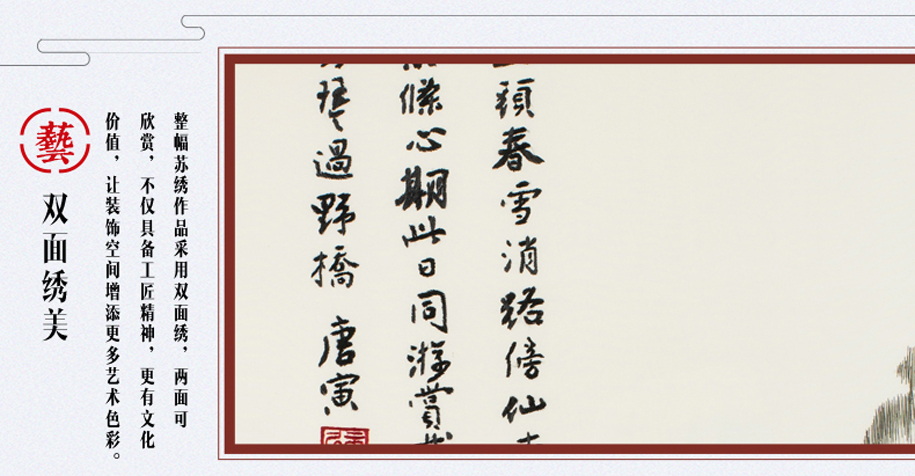 頭春雪消路傍仙
條心期此日同游賞
琴過野橋 唐寅
整幅苏绣作品采用双面绣，两面可
欣赏，不仅具备工匠精神，更有文化
价值，让装饰空间增添更多艺术色彩。
藝
双面绣美